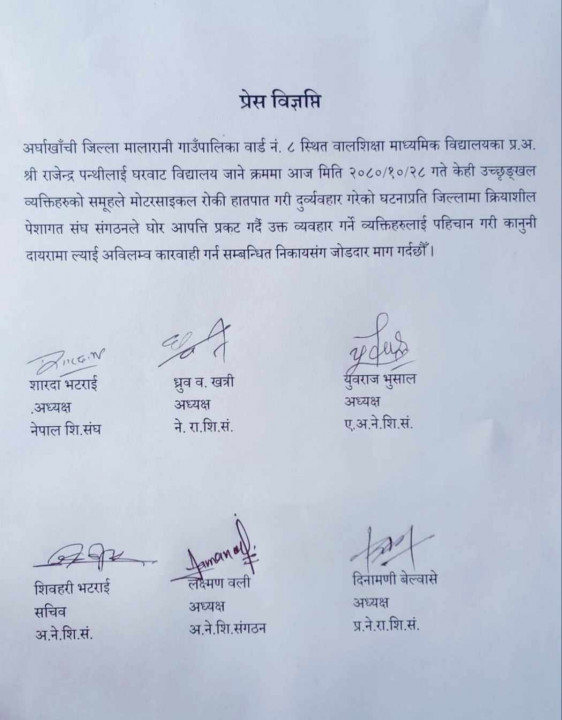 प्रेस विज्ञप्ति
अर्घाखाँची जिल्ला मालारानी गाउँपालिका वार्ड नं. ८ स्थित वालशिक्षा माध्यमिक विद्यालयका प्र.अ.
श्री राजेन्द्र पन्थीलाई घरवाट विद्यालय जाने क्रममा आज मिति २०८०/१०/२८ गते केही उच्छृङ्खल
व्यक्तिहरुको समूहले मोटरसाइकल रोकी हातपात गरी दुर्व्यवहार गरेको घटनाप्रति जिल्लामा क्रियाशील
पेशागत संघ संगठनले घोर आपत्ति प्रकट गर्दै उक्त व्यवहार गर्ने व्यक्तिहरुलाई पहिचान गरी कानुनी
दायरामा ल्याई अविलम्व कारवाही गर्न सम्बन्धित निकायसंग जोडदार माग गर्दछौँ ।
शारदा भटराई
.अध्यक्ष
नेपाल शि.संघ
ध्रुव व. खत्री
अध्यक्ष
ने. रा.शि.सं.
युवराज भुसाल
अध्यक्ष
ए.अ.ने.शि.सं.
शिवहरी भटराई
सचिव
अ.ने.शि.सं.
लक्ष्मण वली
अध्यक्ष
अ.ने.शि.संगठन
दिनामणी बेल्वासे
अध्यक्ष
प्र.ने.रा.शि.सं.